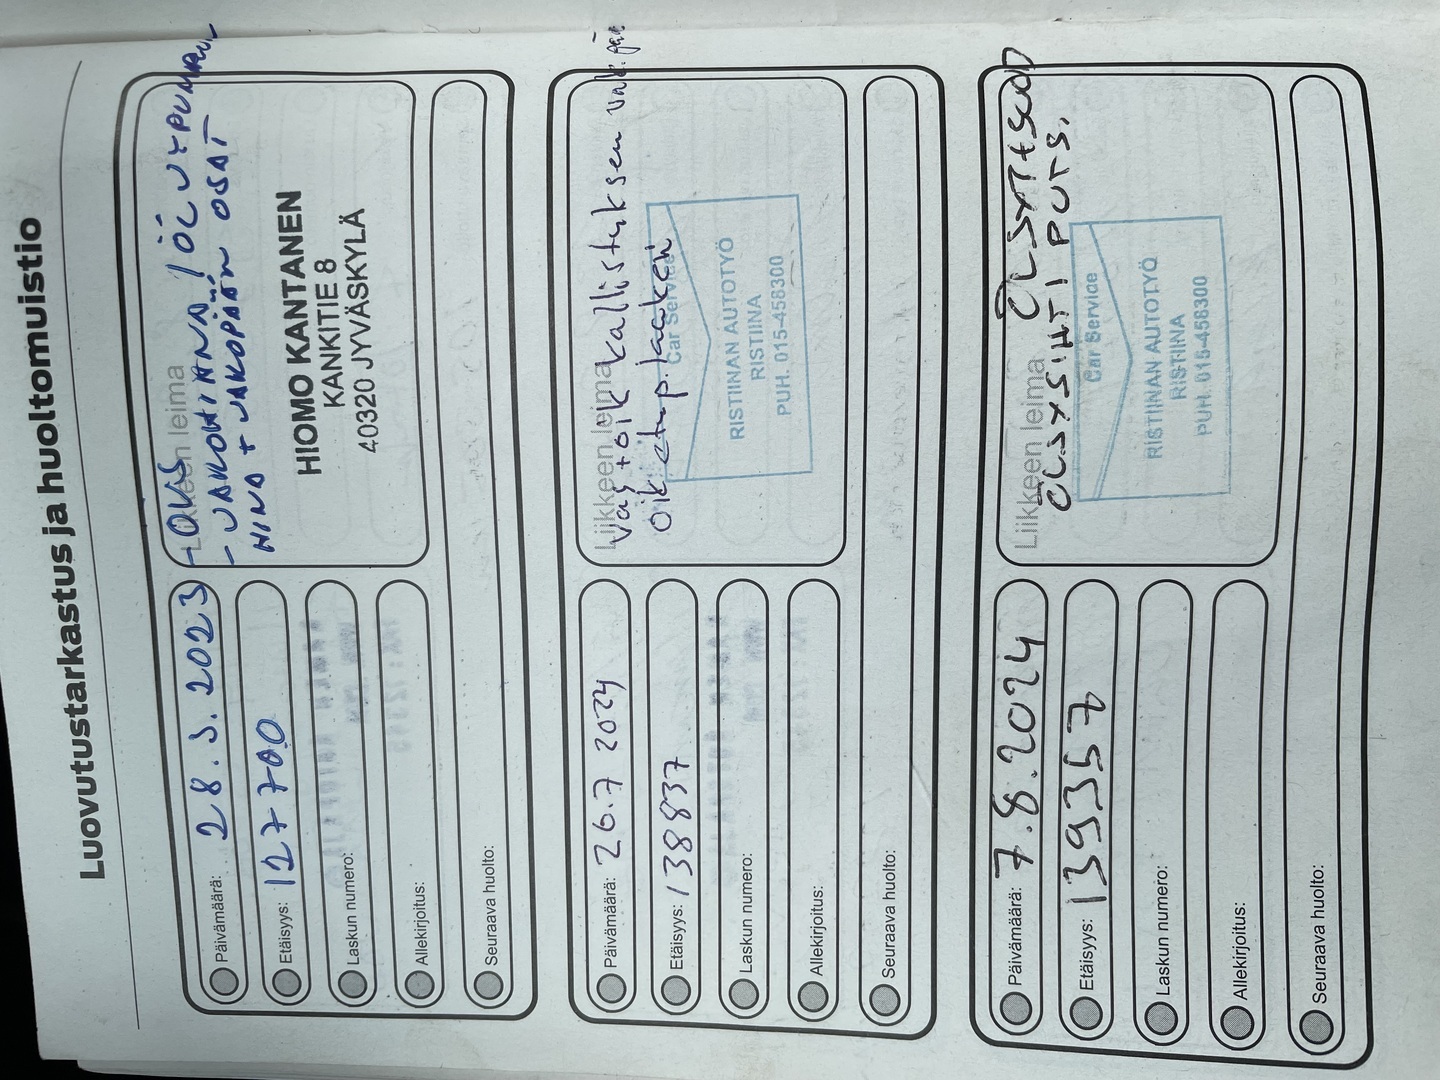 Luovutustarkastus ja huoltomuistio
Päivämäärä: 28.5.2023
Etäisyys: 127700
Laskun numero:
Allekirjoitus:
Seuraava huolto:
Liikkeen leima
- JAKOHIHNA / ÖLJYPUMPUN
HINA + JAKOPÄÄN OSAT
HIOMO KANTANEN
KANKITIE 8
40320 JYVÄSKYLÄ
Päivämäärä: 26.7 2024
Etäisyys: 138837
Laskun numero:
Allekirjoitus:
Seuraava huolto:
Liikkeen leima
Vas + oik kallistuksen vak.
oik etup. laakeri
Car Service
RISTIINAN AUTOTYÖ
RISTIINA
PUH. 015-458300
Päivämäärä: 7.8.2024
Etäisyys: 139357
Laskun numero:
Allekirjoitus:
Seuraava huolto:
Liikkeen leima
ÖLJYT + SUOD
ÖLJYSIHTI PUTS.
Car Service
RISTIINAN AUTOTYÖ
RISTIINA
PUH. 015-458300